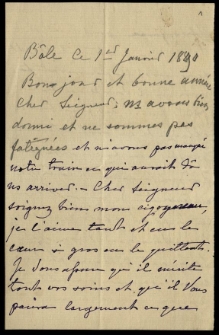 Bâle Ce 1er Janvier 1890
Bonjour et bonne année
Cher Seigneur, n avons bien
dormi et ne sommes pas
fatiguées et n'avons pas manqué
notre train ce qui aurait dû
ns arriver. Cher Seigneur
soignez bien mon
je l'aime tant et eus le
cœur si gros en le quittant.
Je vous assure qu'il mérite
tout vos soins et qu'il Vous
paiera largement ce que